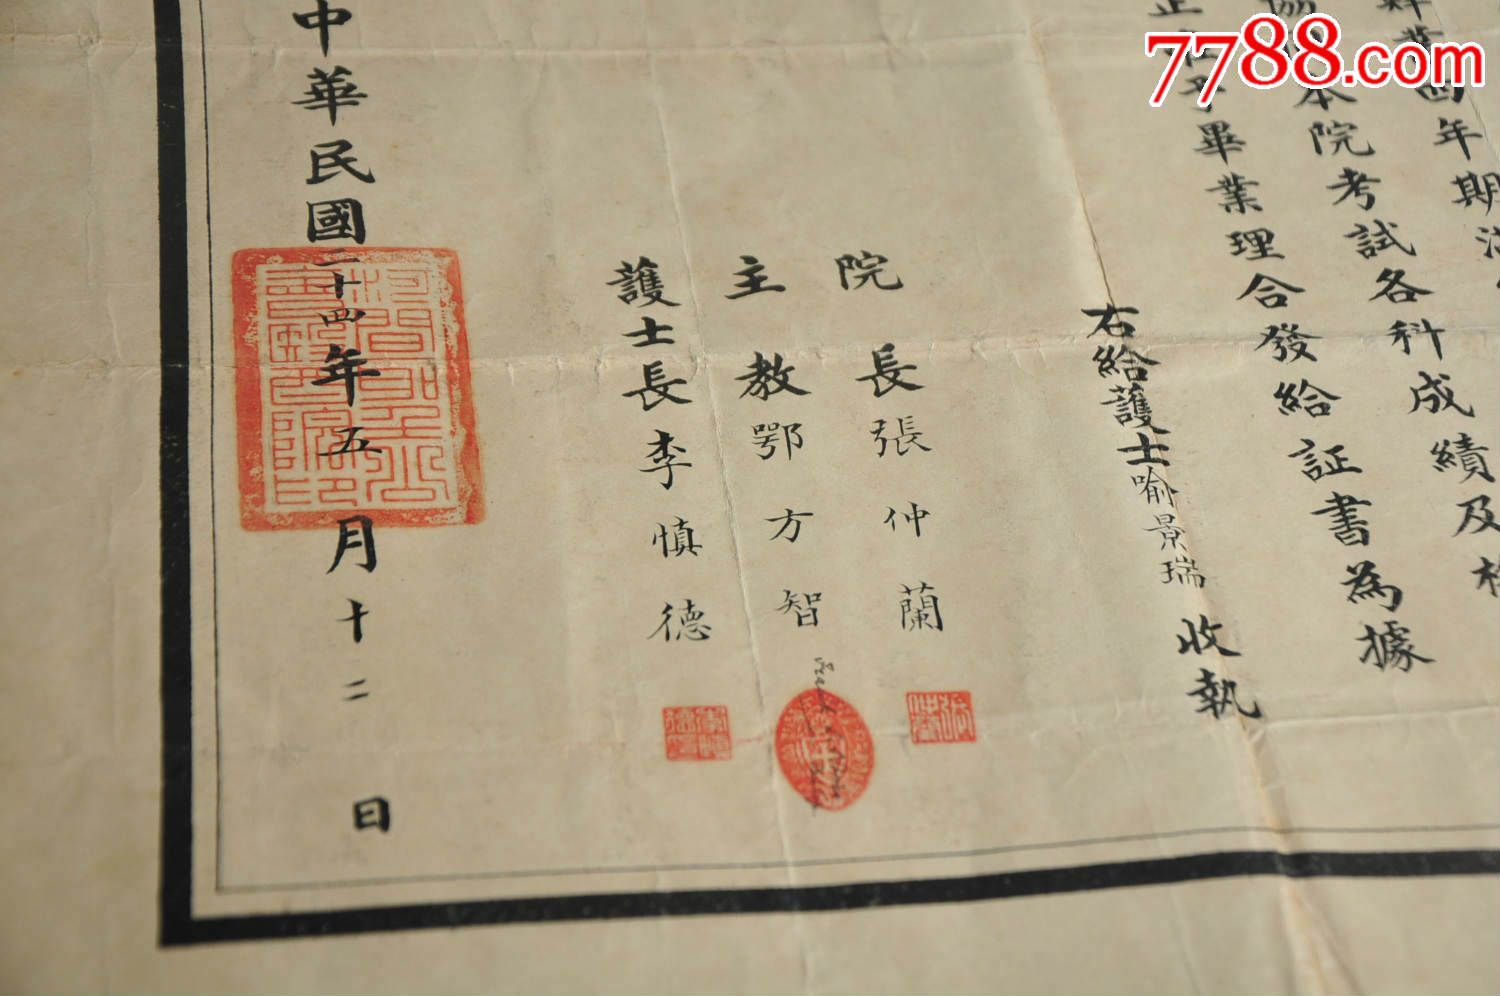 肄業四年期滿
本院考試各科成績及格
予畢業理合發給証書為據
右給護士喻景瑞收執
院長張仲蘭
主教鄂方智
護士長李慎德
中華民國二十四年五月十二日
7788.com